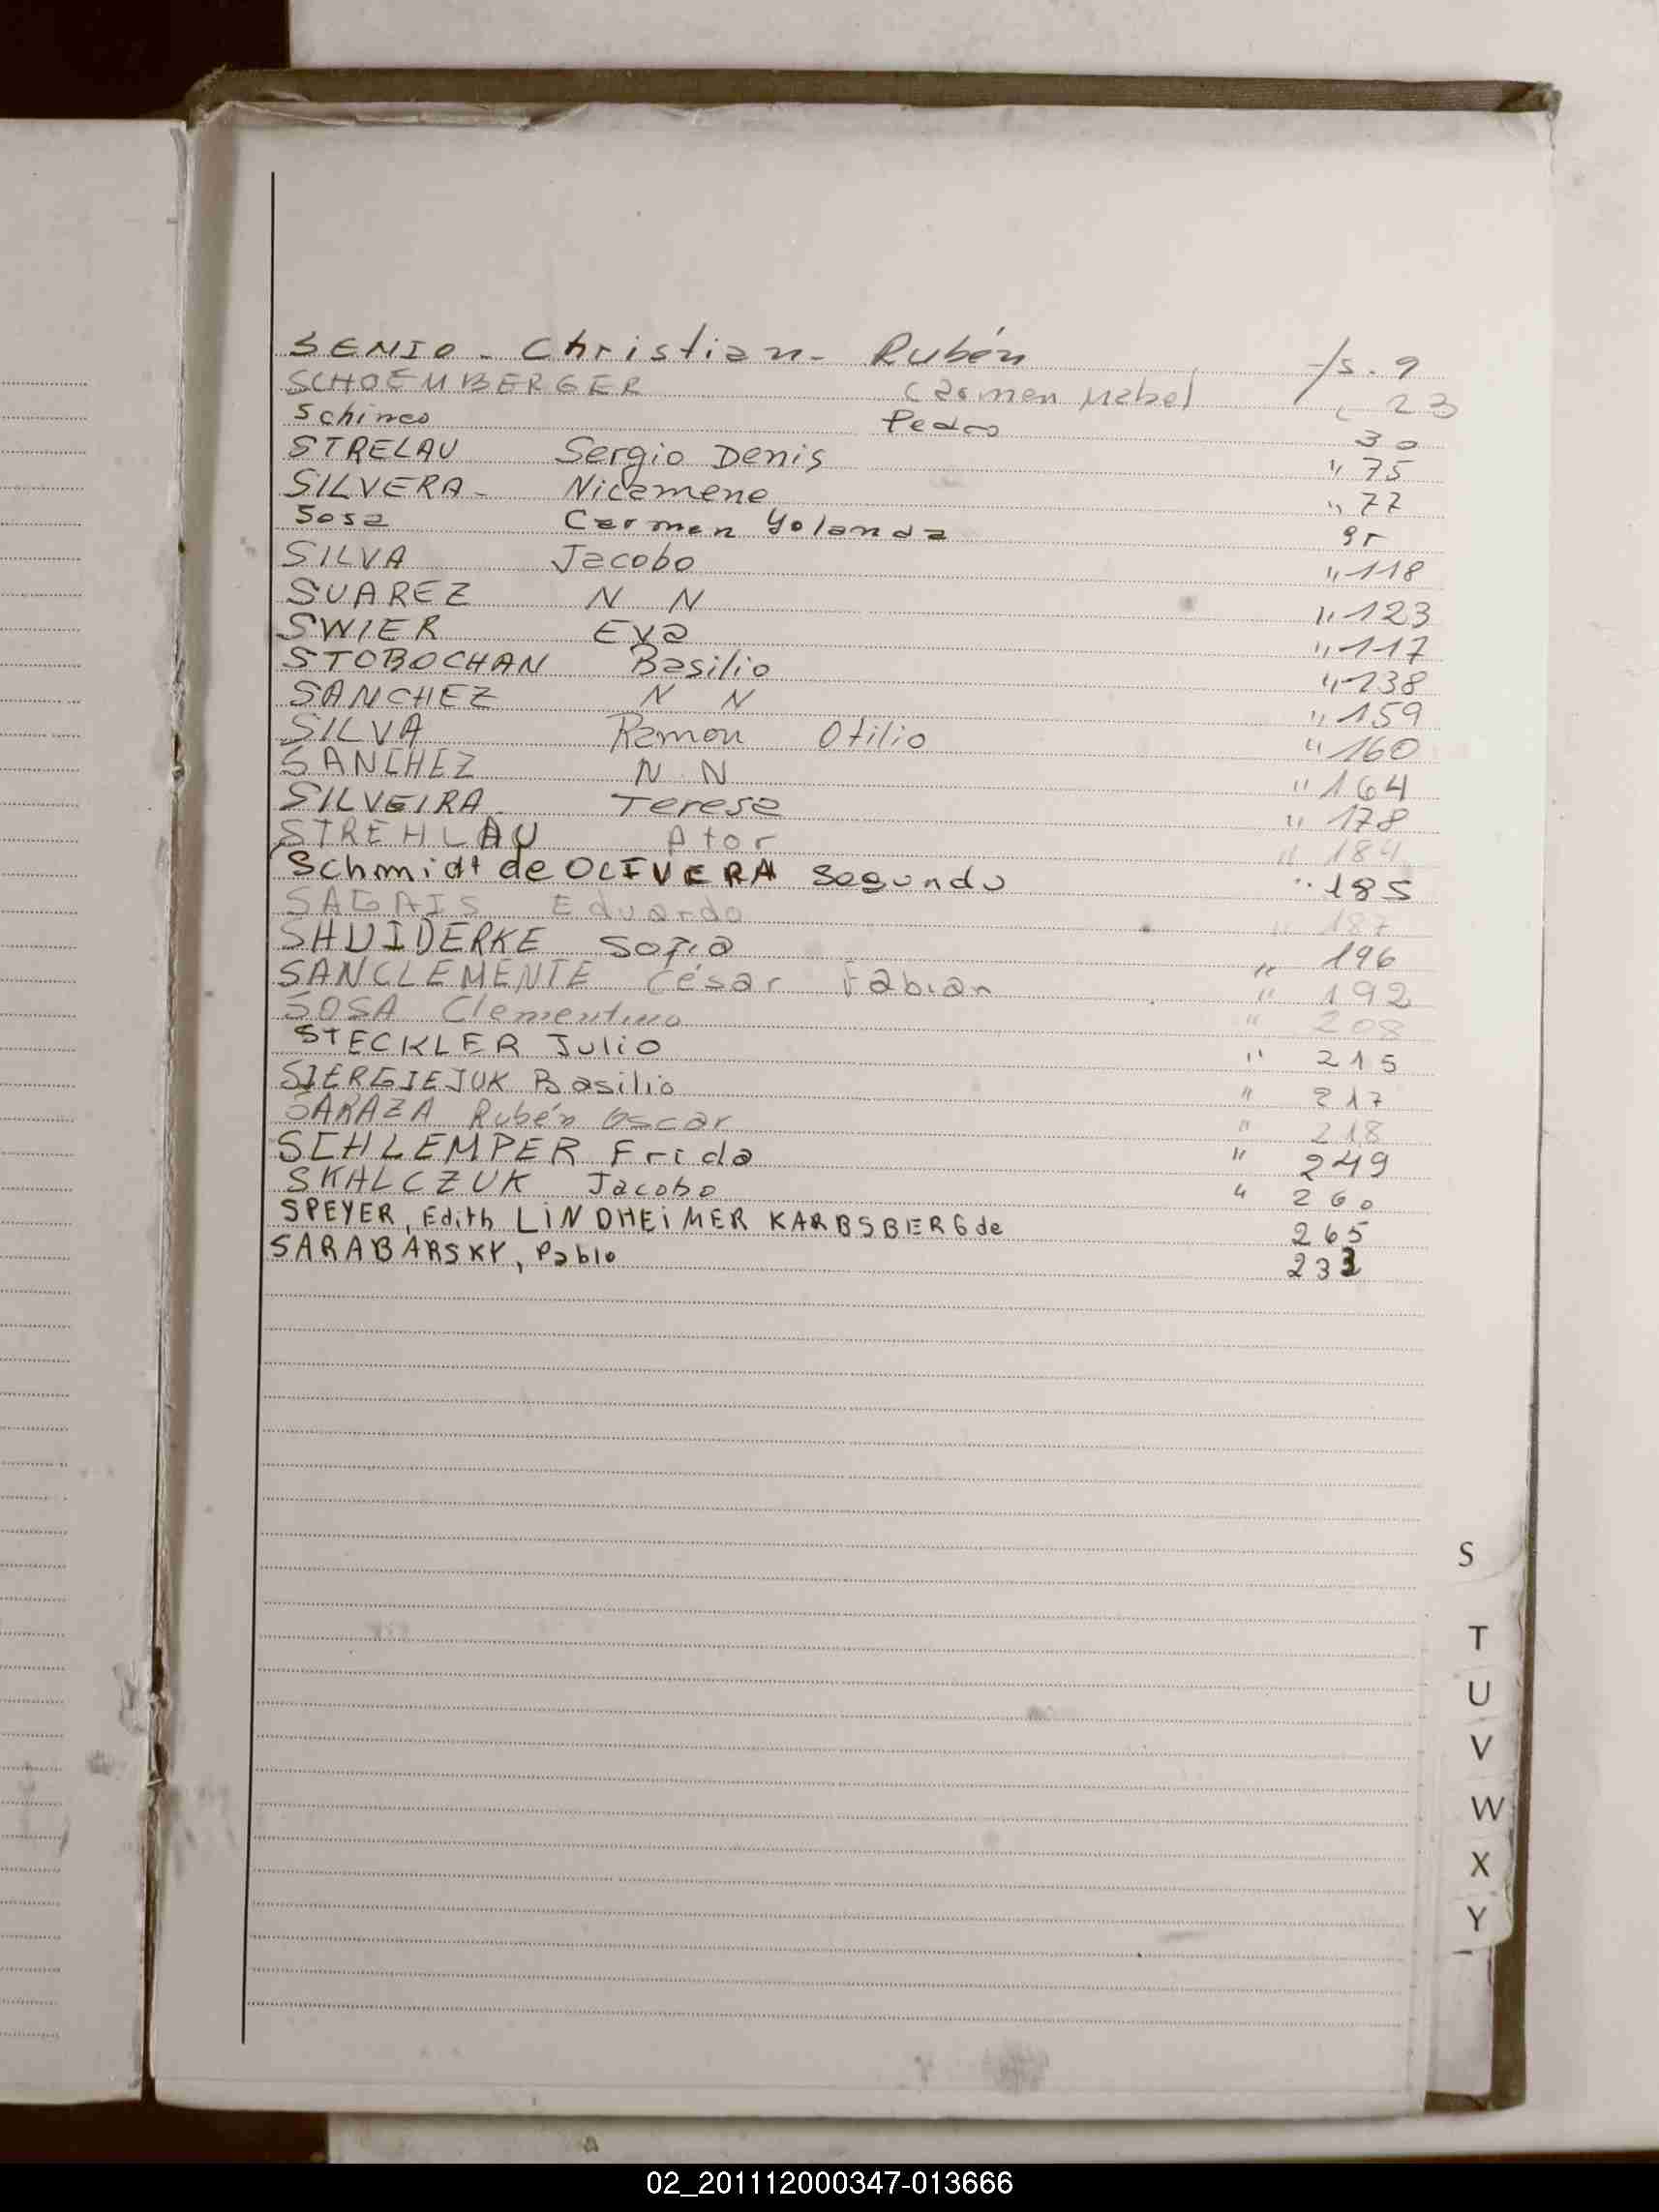 SENIO - Christian - Rubén fs. 9
SCHOEMBERGER Carmen Mabel " 23
Schinco Pedro 30
STRELAU Sergio Denis " 75
SILVERA - Nicamene " 77
Sosa Carmen Yolanda
SILVA Jacobo " 118
SUAREZ N N " 123
SWIER Eva " 117
STOBOCHAN Basilio " 138
SANCHEZ N N " 159
SILVA Ramon Otilio " 160
SANCHEZ N N " 164
SILVEIRA Teresa " 178
STREHLAU Ator " 184
Schmidt de OLIVERA Segundo " 185
SAGAIS Eduardo " 187
SHUIDERKE Sofia " 196
SANCLEMENTE César Fabian " 192
SOSA Clementino " 208
STECKLER Julio " 215
SIERGIEJUK Basilio " 217
SARAZA Rubén Oscar " 218
SCHLEMPER Frida " 249
SKALCZUK Jacobo " 260
SPEYER, Edith LINDHEIMER KARBSBERG de 265
SARABARSKY, Pablo
S
T
U
V
W
X
Y
02_201112000347-013666